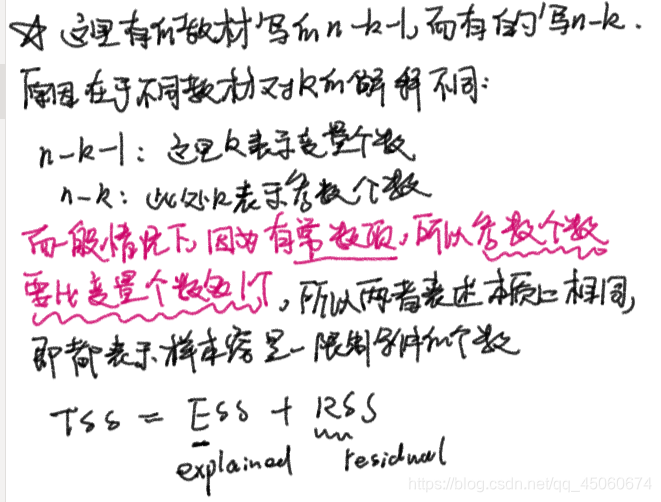 ☆ 这里有的教材写的n-k-1,而有的写n-k.
原因在于不同教材对k的解释不同:
n-k-1: 这里k表示变量个数
n-k: 此处k表示参数个数
而一般情况下,因为有常数项,所以参数个数
要比变量个数多1个,所以两者表述本质上相同,
即都表示样本容量-限制条件的个数
TSS = ESS + RSS
explained residual
https://blog.csdn.net/qq_45060674